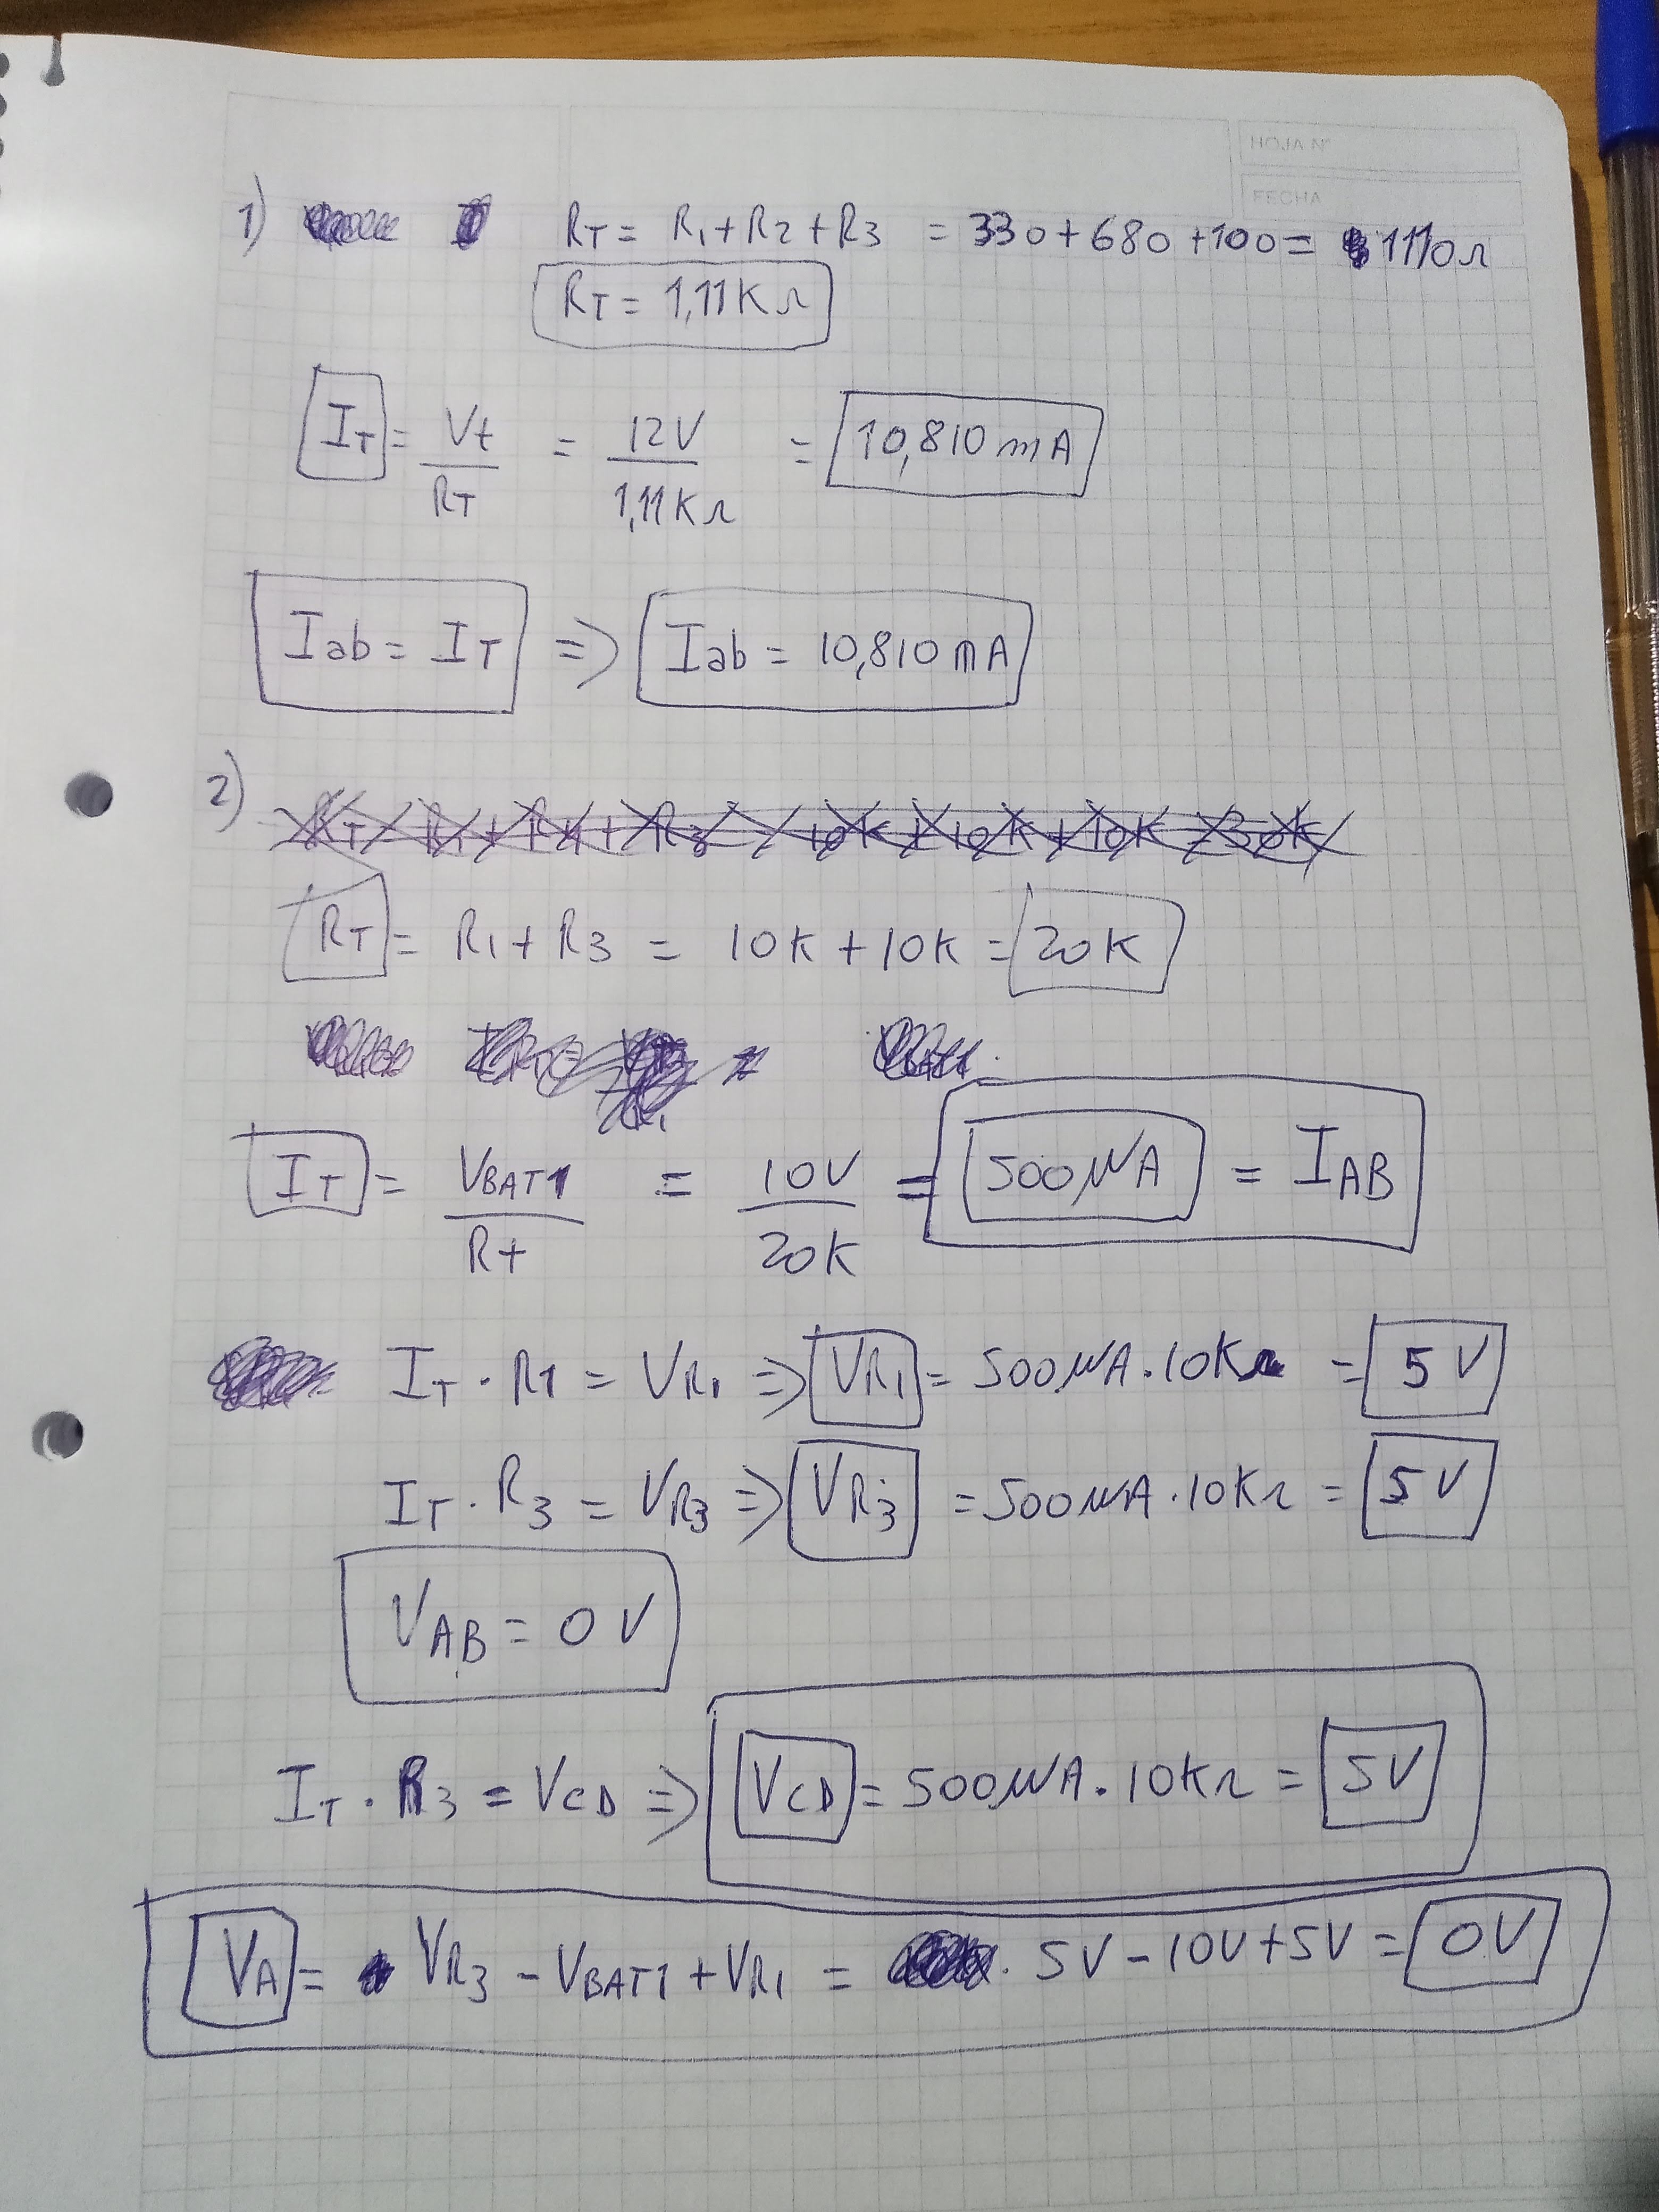 HOJA N°
FECHA
1) RT = R1 + R2 + R3 = 330 + 680 + 100 = 1110 Ω
RT = 1,11 K Ω
IT = Vt / RT = 12V / 1,11 K Ω = 10,810 mA
Iab = IT => Iab = 10,810 mA
2)
RT = R1 + R3 = 10K + 10K = 20K
IT = VBAT1 / Rt = 10V / 20K = 500 μA = IAB
IT · R1 = VR1 => VR1 = 500 μA · 10KΩ = 5V
IT · R3 = VR3 => VR3 = 500 μA · 10KΩ = 5V
VAB = 0V
IT · R3 = VCD => VCD = 500 μA · 10KΩ = 5V
VA = VR3 - VBAT1 + VR1 = 5V - 10V + 5V = 0V